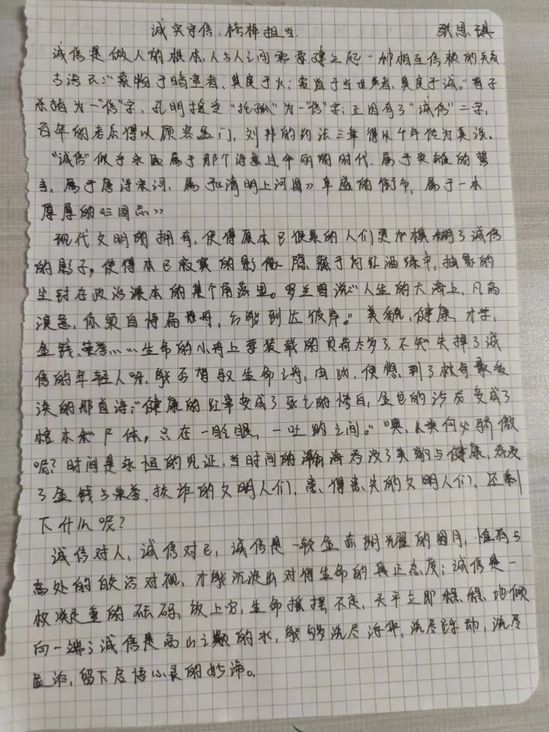 诚实守信,榜样担当 张思琪
诚信是做人的根本,人与人之间需要建立起一种相互信赖的关系
古语云:"索物于暗室者,莫良于火;索道于当世者,莫良于诚。"君子
为一"信"字,孔明接受"托孤"为一"信"字;正因有了"诚信"二字,
百年的老店得以顾客盈门,刘邦的约法三章得以千年传为美谈。
"诚信"似乎永远属于那个海晏河清的时代,属于英雄的誓
言,属于唐诗宋词,属于《清明上河图》阜盛的街市,属于一本
厚厚的《三国志》
现代文明的拥有,使得原本已很累的人们更加模糊了诚信
的影子。使得本已寂寞的影像隐蔽于灯红酒绿中,抽象的
生封在政治课本的某个角落里。罗兰曾说"人生的大海上,风高
浪急,你须自持扁舟,方能到达彼岸。"美貌,健康,才学,
金钱,荣誉……生命的小舟上要装载的负荷太多了,不知失掉了诚
信的年轻人呀,能否驾驭生命之舟,由此,便想到了
的那首诗:"健康的红晕变成了死亡的惨白,金色的
,只在一眨眼,一吐纳之间。"噢,人类何必骄傲
呢?时间是永恒的见证,当时间的瀚海吞没了美貌与健康,吞没
了金钱与荣誉,狡诈的文明人们,患得患失的文明人们,还剩
下什么呢?
诚信对人,诚信对己,诚信是一轮金赤朗耀的圆月,惟有与
高处的皎洁对视,才能沉淀出对待生命的真正态度;诚信是一
枚凝重的砝码,放上它,生命摇摆不定,天平立即稳稳地倾
向一端;诚信是高山之巅的水,能够洗尽浮华,洗尽躁动,洗尽
虚诈,留下启悟心灵的妙谛。